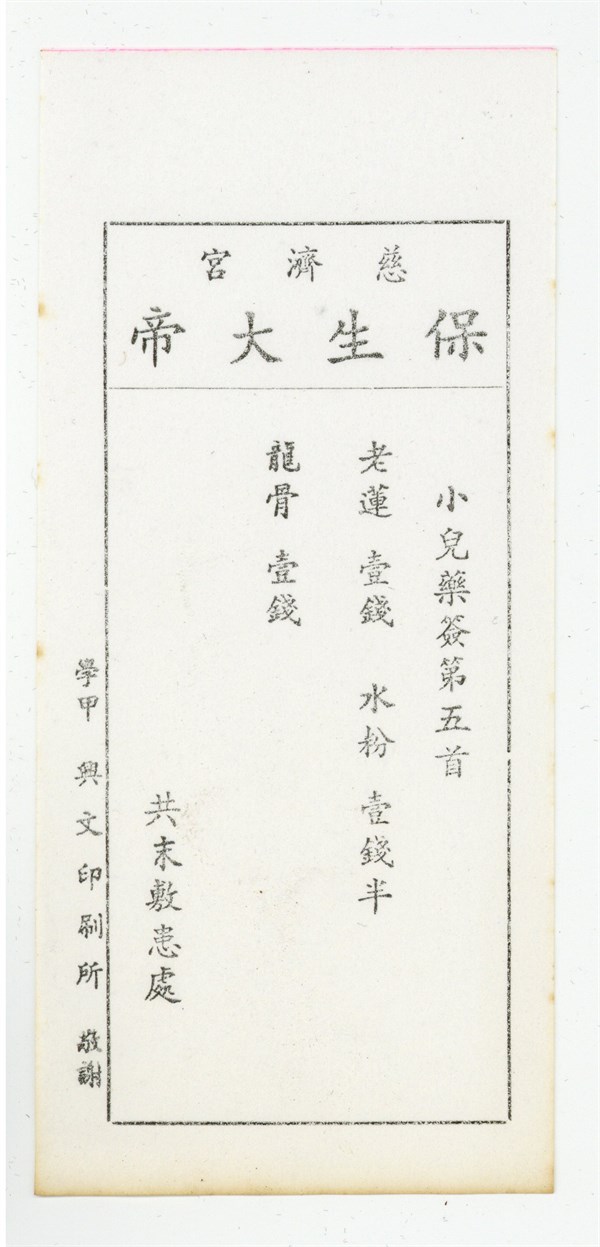 慈濟宮
保生大帝
小兒藥簽第五首
老蓮 壹錢 水粉 壹錢半
龍骨 壹錢
共末敷患處
學甲 興文印刷所 敬謝